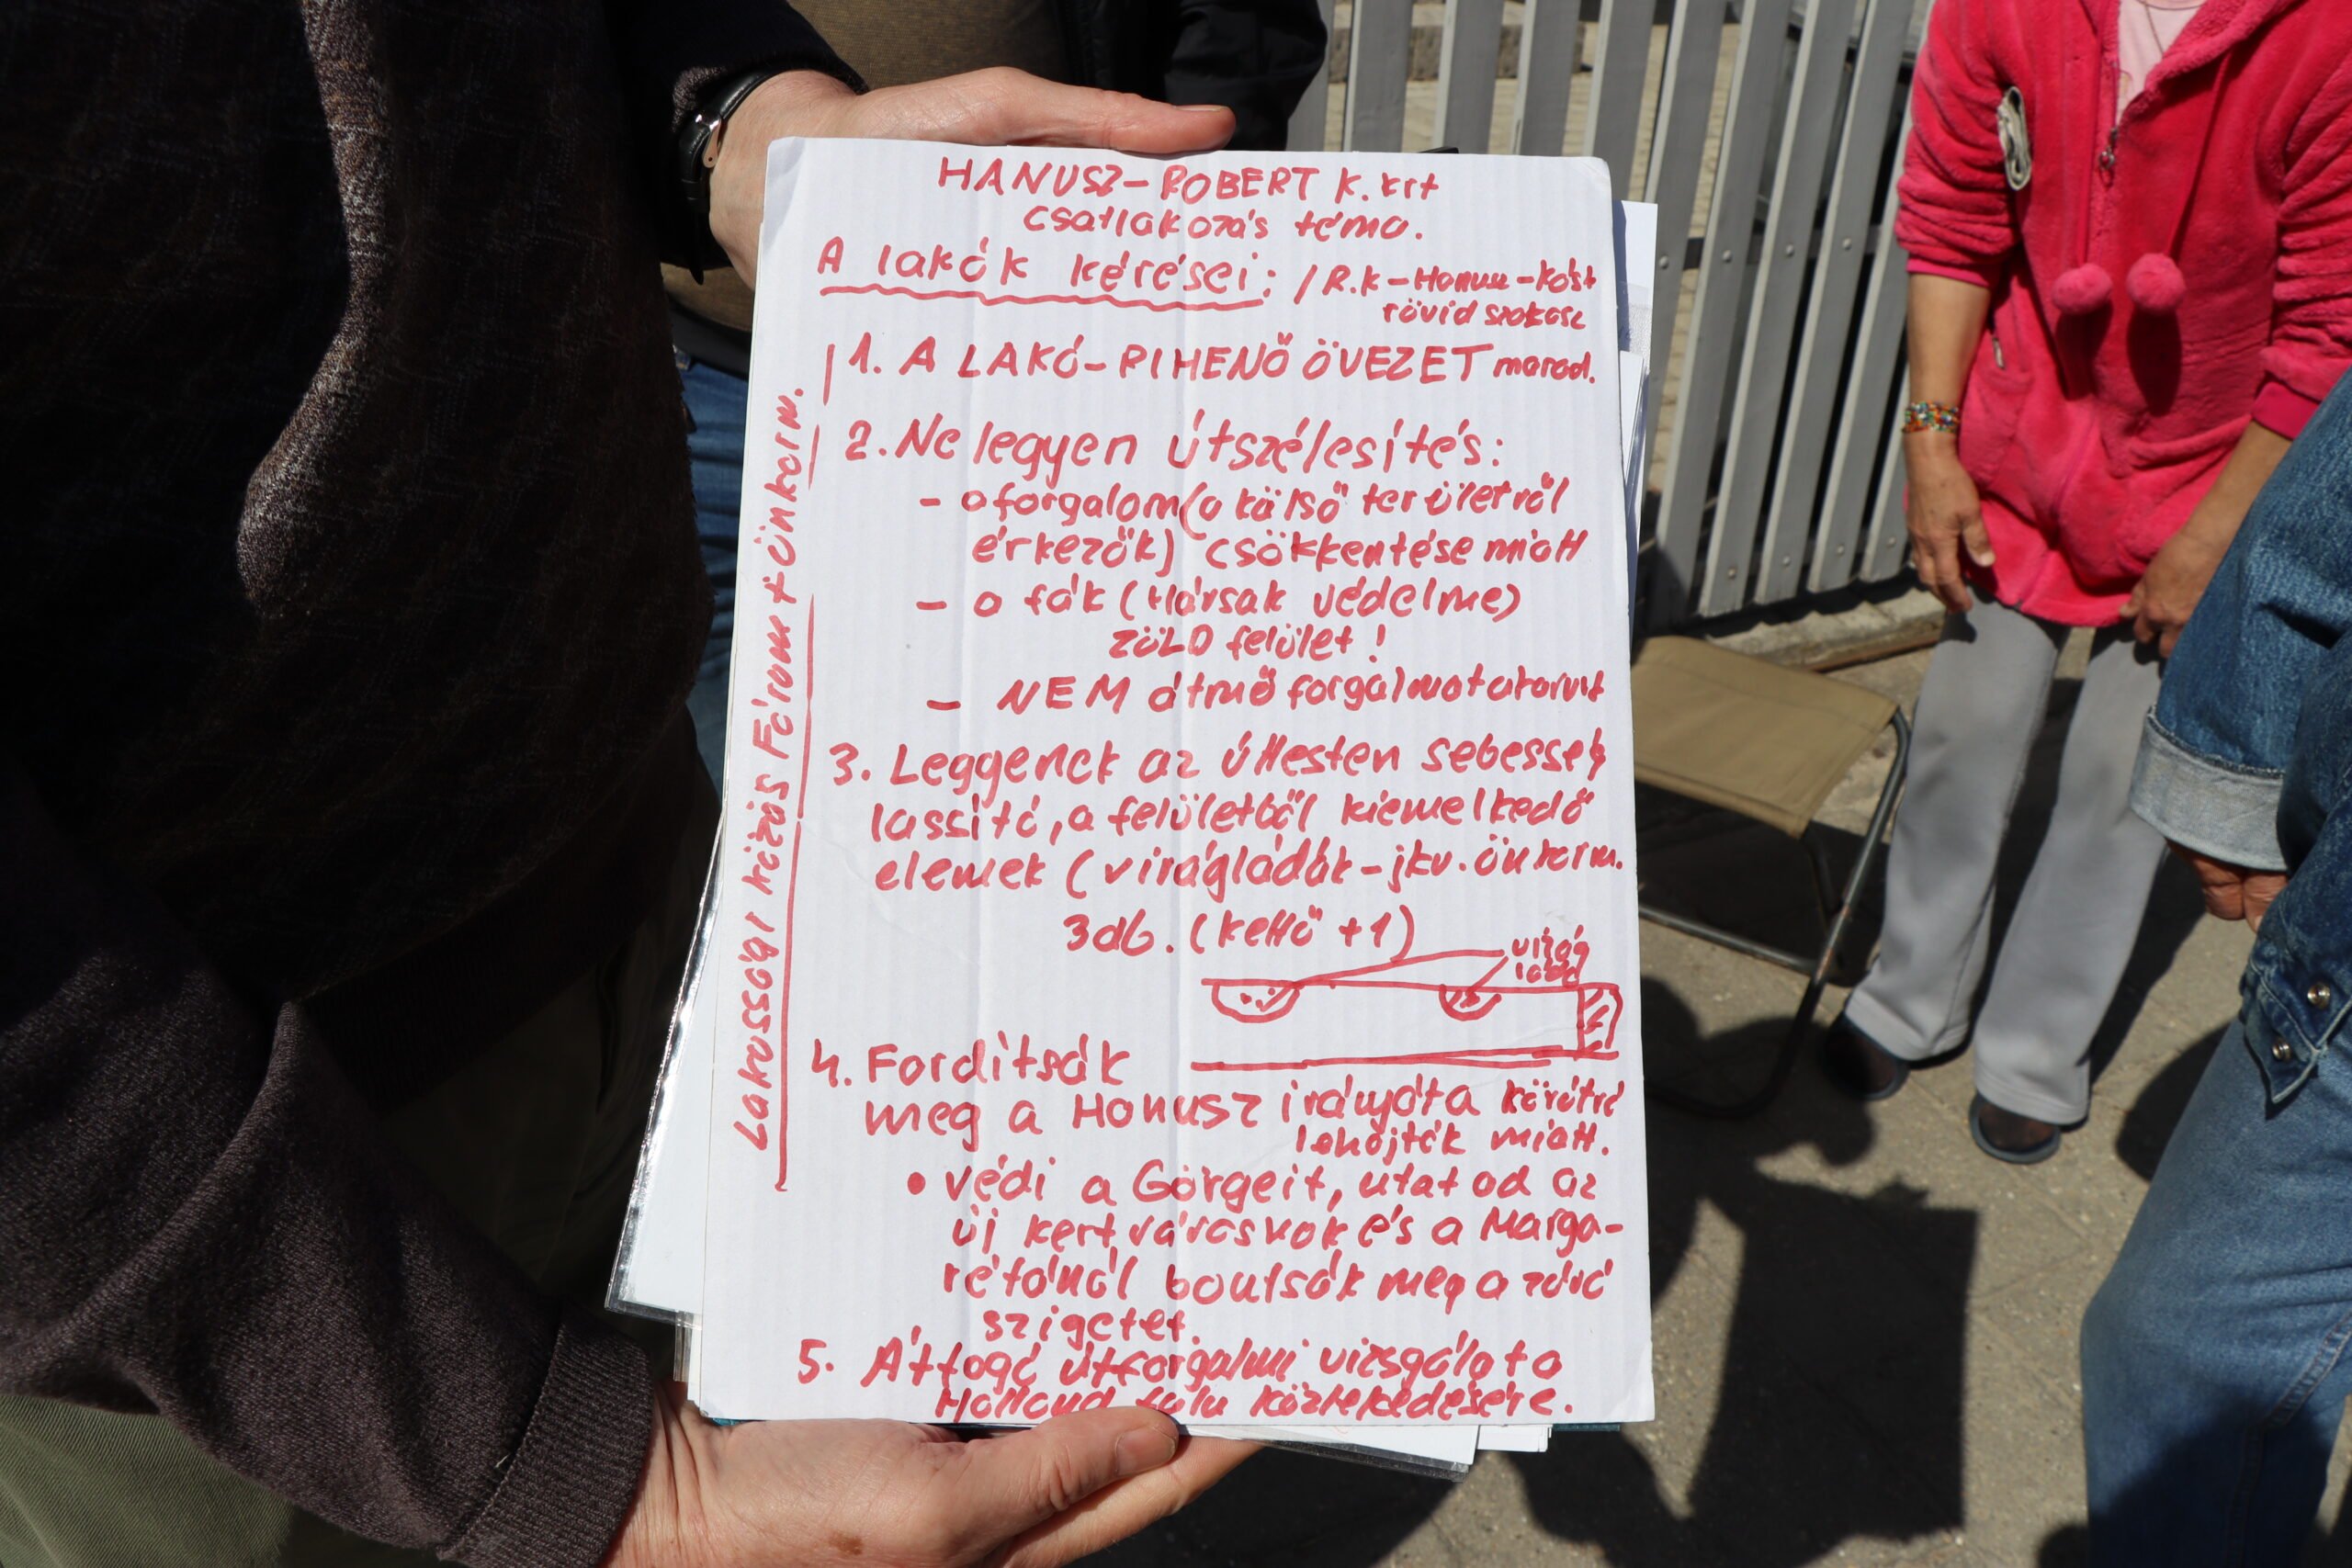 HANUSZ-ROBERT K. krt
csatlakozás téma.
A lakók kérései: /R.K-Hanusz-Kóst
rövid szakasz
1. A LAKÓ-PIHENŐ ÖVEZET marad.
2. Ne legyen útszélesítés:
- a forgalom (a külső területről
érkezők) csökkentése miatt
- a fák (Hársak védelme)
ZÖLD felület!
- NEM átmő forgalmat akarunk
3. Leggenek az úttesten sebesség
lassító, a felületből kiemelkedő
elemek (virágládák-jkv. önkorm.
3db. (kettő +1)
virág
láda
4. Fordítsák
meg a Hanusz irányát a körútról
lehajtók miatt.
• védi a Görgeit, utat ad az
új kertvárosnak és a Marga-
rétánál bontsák meg a záró
szigetet.
5. Átfogó útforgalmi vizsgálat a
Holland falu közlekedésére.
Lakossági közös Fórum + Önkorm.